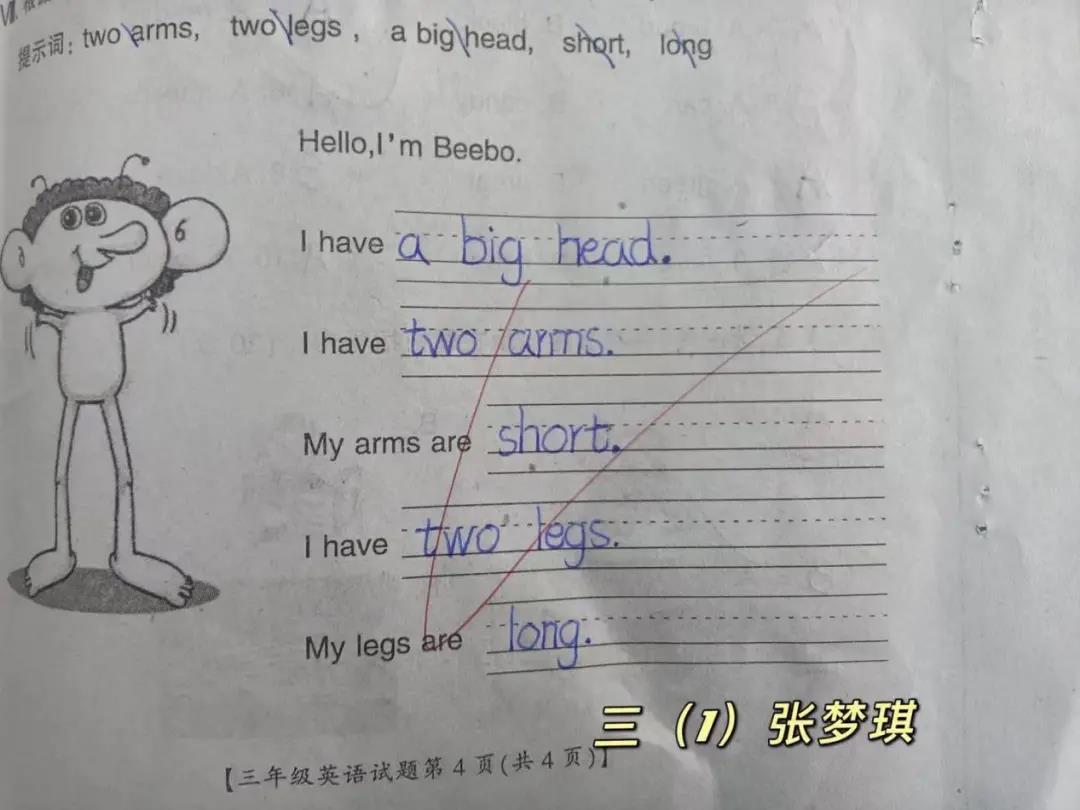 Ⅶ. 根
提示词: two arms, two legs, a big head, short, long
Hello,I'm Beebo.
I have a big head.
I have two arms.
My arms are short.
I have two legs.
My legs are long.
三（1）张梦琪
【三年级英语试题第4页(共4页)】